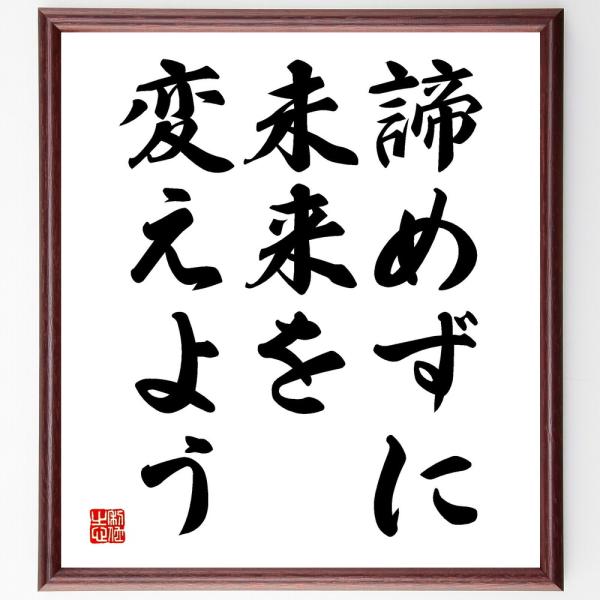 諦めずに
未来を
変えよう